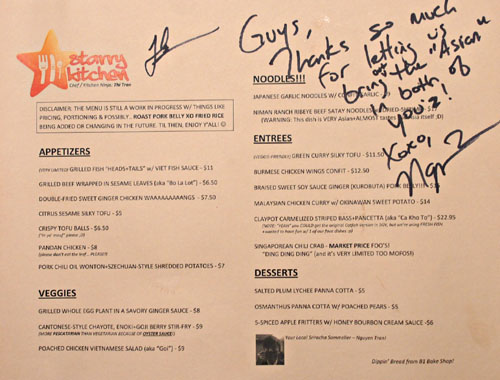 starry
kitchen
Chef / Kitchen Ninja, Thi Tran
DISCLAIMER: THE MENU IS STILL A WORK IN PROGRESS W/ THINGS LIKE
PRICING, PORTIONING & POSSIBLY. ROAST PORK BELLY XO FRIED RICE
BEING ADDED OR CHANGING IN THE FUTURE. TIL THEN, ENJOY Y'ALL! ☺
APPETIZERS
(VERY LIMITED) GRILLED FISH "HEADS+TAILS" w/ VIET FISH SAUCE - $11
GRILLED BEEF WRAPPED IN SESAME LEAVES (aka "Bo La Lot") - $6.50
DOUBLE-FRIED SWEET GINGER CHICKEN WAAAAAAAAANGS - $7.50
CITRUS SESAME SILKY TOFU - $5
CRISPY TOFU BALLS - $6.50
("In yo' mouf" please ;D)
PANDAN CHICKEN - $8
(please don't eat the leaf... PLEASE!)
PORK CHILI OIL WONTON+SZECHUAN-STYLE SHREDDED POTATOES - $7
VEGGIES
GRILLED WHOLE EGG PLANT IN A SAVORY GINGER SAUCE - $8
CANTONESE-STYLE CHAYOTE, ENOKI+GOJI BERRY STIR-FRY - $9
(MORE PESCATARIAN THAN VEGETARIAN BECAUSE OF OYSTER SAUCE!)
POACHED CHICKEN VIETNAMESE SALAD (aka "Goi") - $9
Guys,
Thanks so much
for letting us
bring the "Asian"
out of
both of
you'z!
xoxo,
NOODLES!!!
JAPANESE GARLIC NOODLES W/ - $9
NIMAN RANCH RIBEYE BEEF SATAY NOODLES
(WARNING: This dish is VERY Asian+ALMOST tastes itself ;D)
ENTREES
(VEGGIE-FRIENDLY) GREEN CURRY SILKY TOFU - $11.50
BURMESE CHICKEN WINGS CONFIT - $12.50
BRAISED SWEET SOY SAUCE GINGER (KUROBUTA) PORK BELLY!!!
MALAYSIAN CHICKEN CURRY w/ OKINAWAN SWEET POTATO - $14
CLAYPOT CARMELIZED STRIPED BASS+PANCETTA (aka "Ca Kho To") - $22.95
SINGAPOREAN CHILI CRAB - MARKET PRICE FOO'S!
"DING DING DING" (and it's VERY LIMITED TOO MOFOS!)
DESSERTS
SALTED PLUM LYCHEE PANNA COTTA - $5
OSMANTHUS PANNA COTTA W/ POACHED PEARS - $5
5-SPICED APPLE FRITTERS W/ HONEY BOURBON CREAM SAUCE - $6
Your Local Sriracha Sommelier – Nguyen Tran!
Dippin' Bread from 81 Bake Shop!